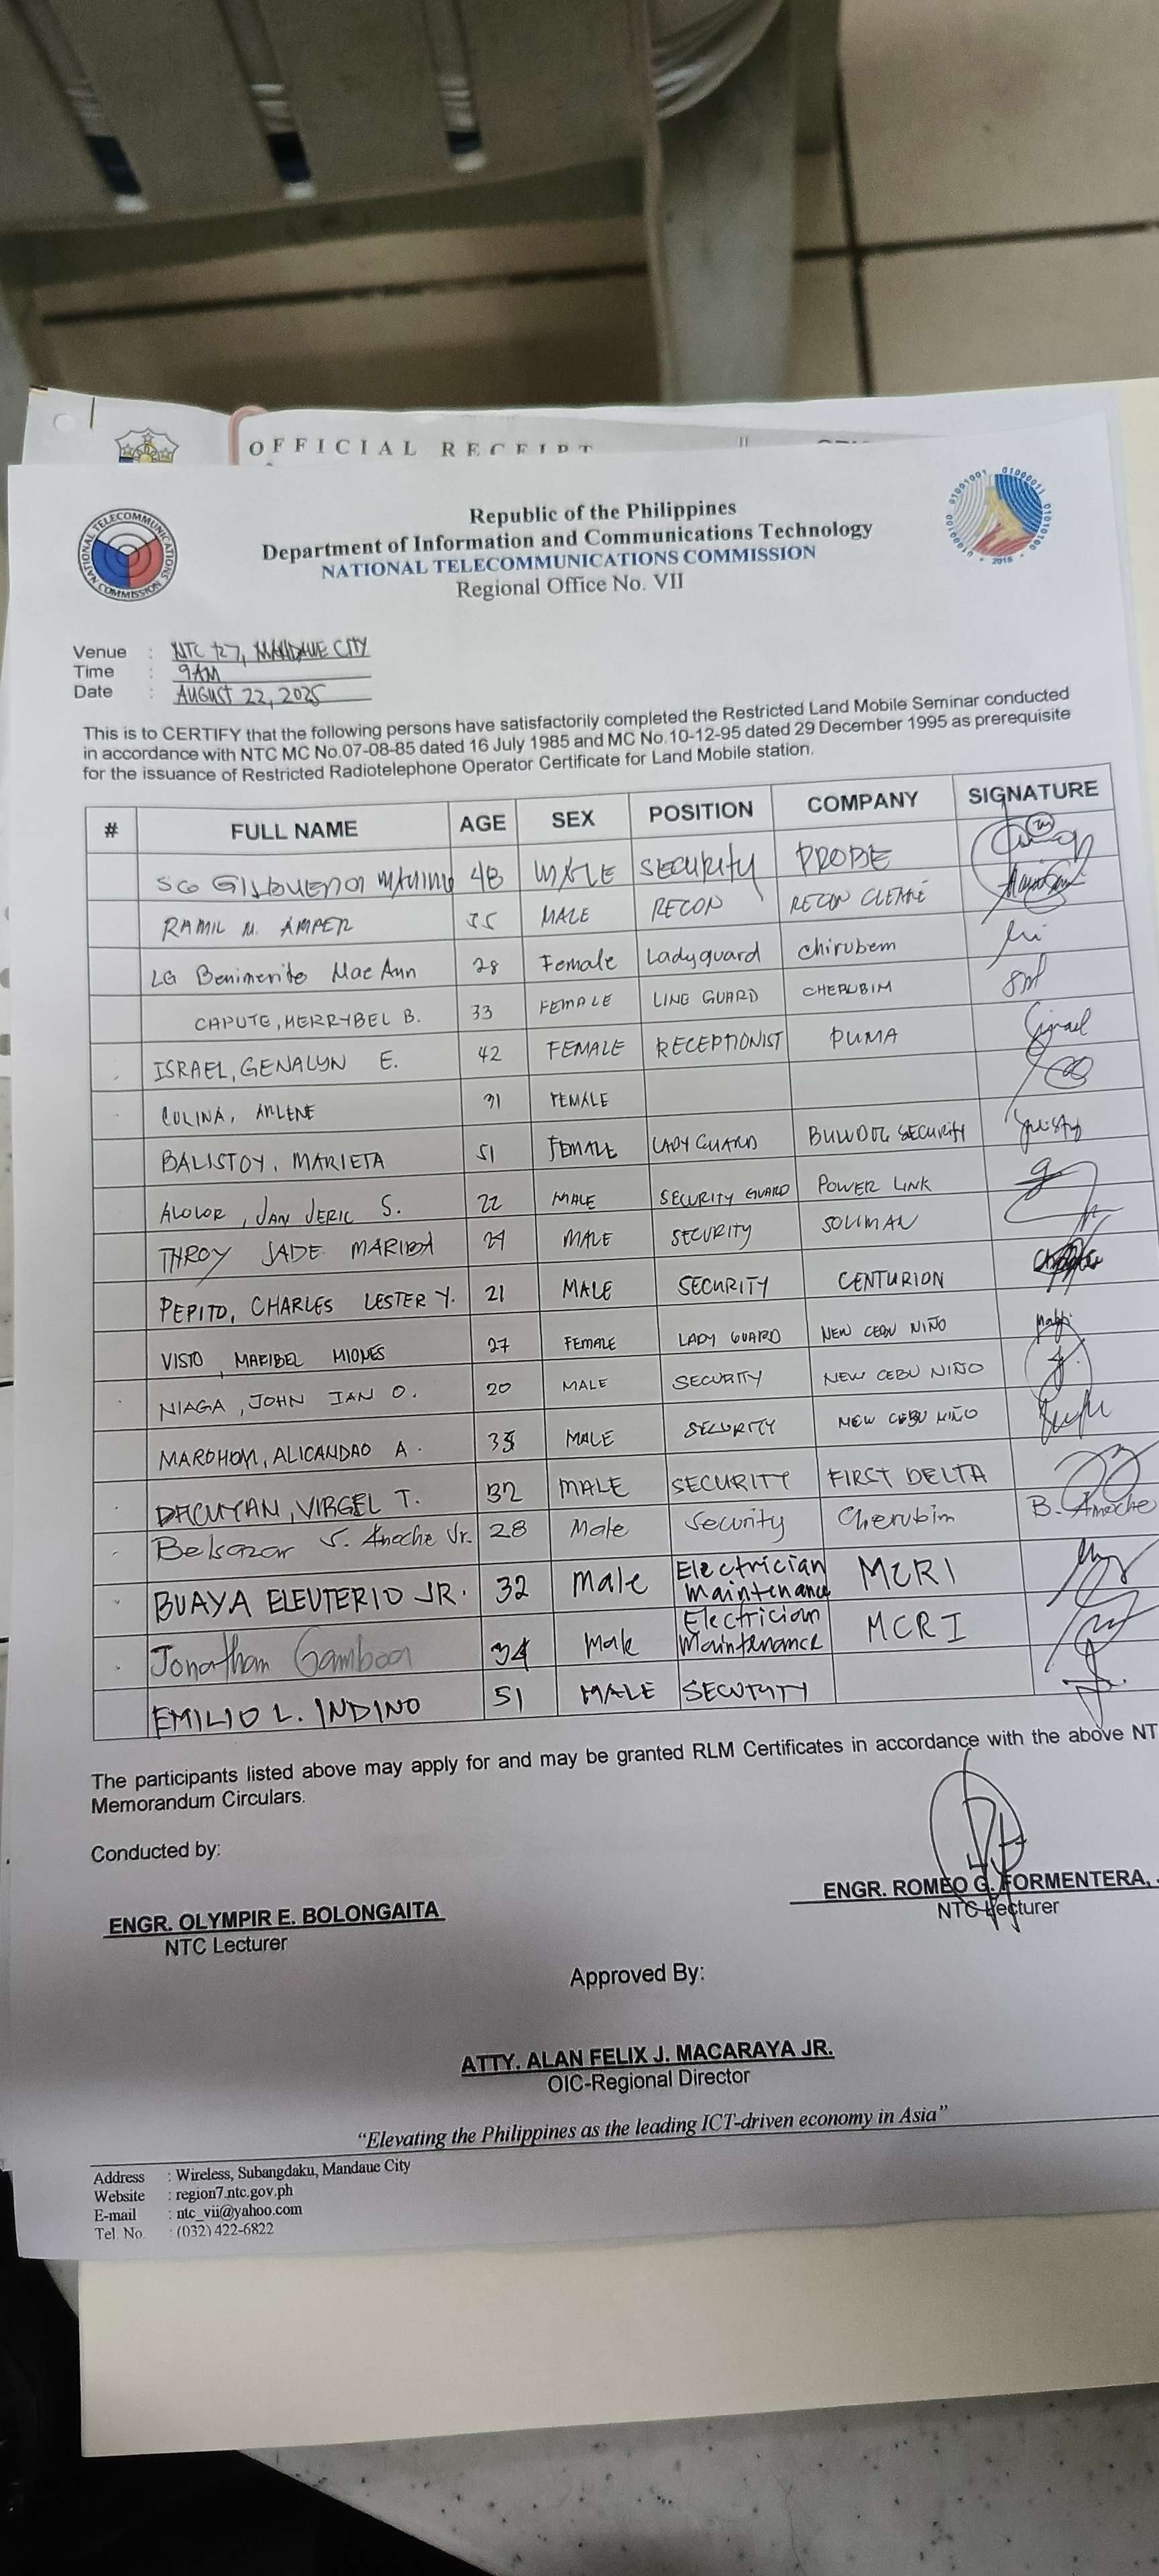 OFFICIAL RECEIPT
NATIONAL TELECOMMUNICATIONS COMMISSION
01001001 01000011 01010100 01000100 2016
Republic of the Philippines
Department of Information and Communications Technology
NATIONAL TELECOMMUNICATIONS COMMISSION
Regional Office No. VII
Venue : NTC R7, MANDAUE CITY
Time : 9AM
Date : AUGUST 22, 2025
This is to CERTIFY that the following persons have satisfactorily completed the Restricted Land Mobile Seminar conducted
in accordance with NTC MC No.07-08-85 dated 16 July 1985 and MC No.10-12-95 dated 29 December 1995 as prerequisite
for the issuance of Restricted Radiotelephone Operator Certificate for Land Mobile station.
# FULL NAME AGE SEX POSITION COMPANY SIGNATURE
48 MALE SECURITY PROBE
RAMIL M. AMPER 35 MALE RECON RECON
LG Benimerito Mae Ann 28 Female Ladyguard Chirubem
CAPUTE, MERRYBEL B. 33 FEMALE LING GUARD CHERUBIM
ISRAEL, GENALYN E. 42 FEMALE RECEPTIONIST PUMA
COLINA, ARLENE 31 FEMALE
BALISTOY, MARIETA 51 FEMALE LADY GUARD BULLDOG SECURITY
JAN JERIC S. 22 MALE SECURITY GUARD POWER LINK
THROY JADE 29 MALE SECURITY SOLIMAN
PEPITO, CHARLES LESTER Y. 21 MALE SECURITY CENTURION
VISTO, MARIBEL MIONES 27 FEMALE LADY GUARD NEW CEBU NIÑO
NIAGA, JOHN IAN O. 20 MALE SECURITY NEW CEBU NIÑO
MAROHOM, ALICANDAO A. MALE SECURITY NEW CEBU NIÑO
DACUYAN, VIRGEL T. 32 MALE SECURITY FIRST DELTA
Belsazar S. Anoche Jr. 28 Male Security Cherubim B. Anoche
BUAYA ELEUTERIO JR. 32 Male Electrician Maintenance MCRI
Jonathan Gamboa 34 Male Electrician Maintenance MCRI
EMILIO L. INDINO 51 MALE SECURITY
The participants listed above may apply for and may be granted RLM Certificates in accordance with the above NT
Memorandum Circulars.
Conducted by:
ENGR. OLYMPIR E. BOLONGAITA
NTC Lecturer
ENGR. ROMEO G. FORMENTERA,
NTC Lecturer
Approved By:
ATTY. ALAN FELIX J. MACARAYA JR.
OIC-Regional Director
"Elevating the Philippines as the leading ICT-driven economy in Asia"
Address : Wireless, Subangdaku, Mandaue City
Website : region7.ntc.gov.ph
E-mail : ntc_vii@yahoo.com
Tel. No. : (032) 422-6822